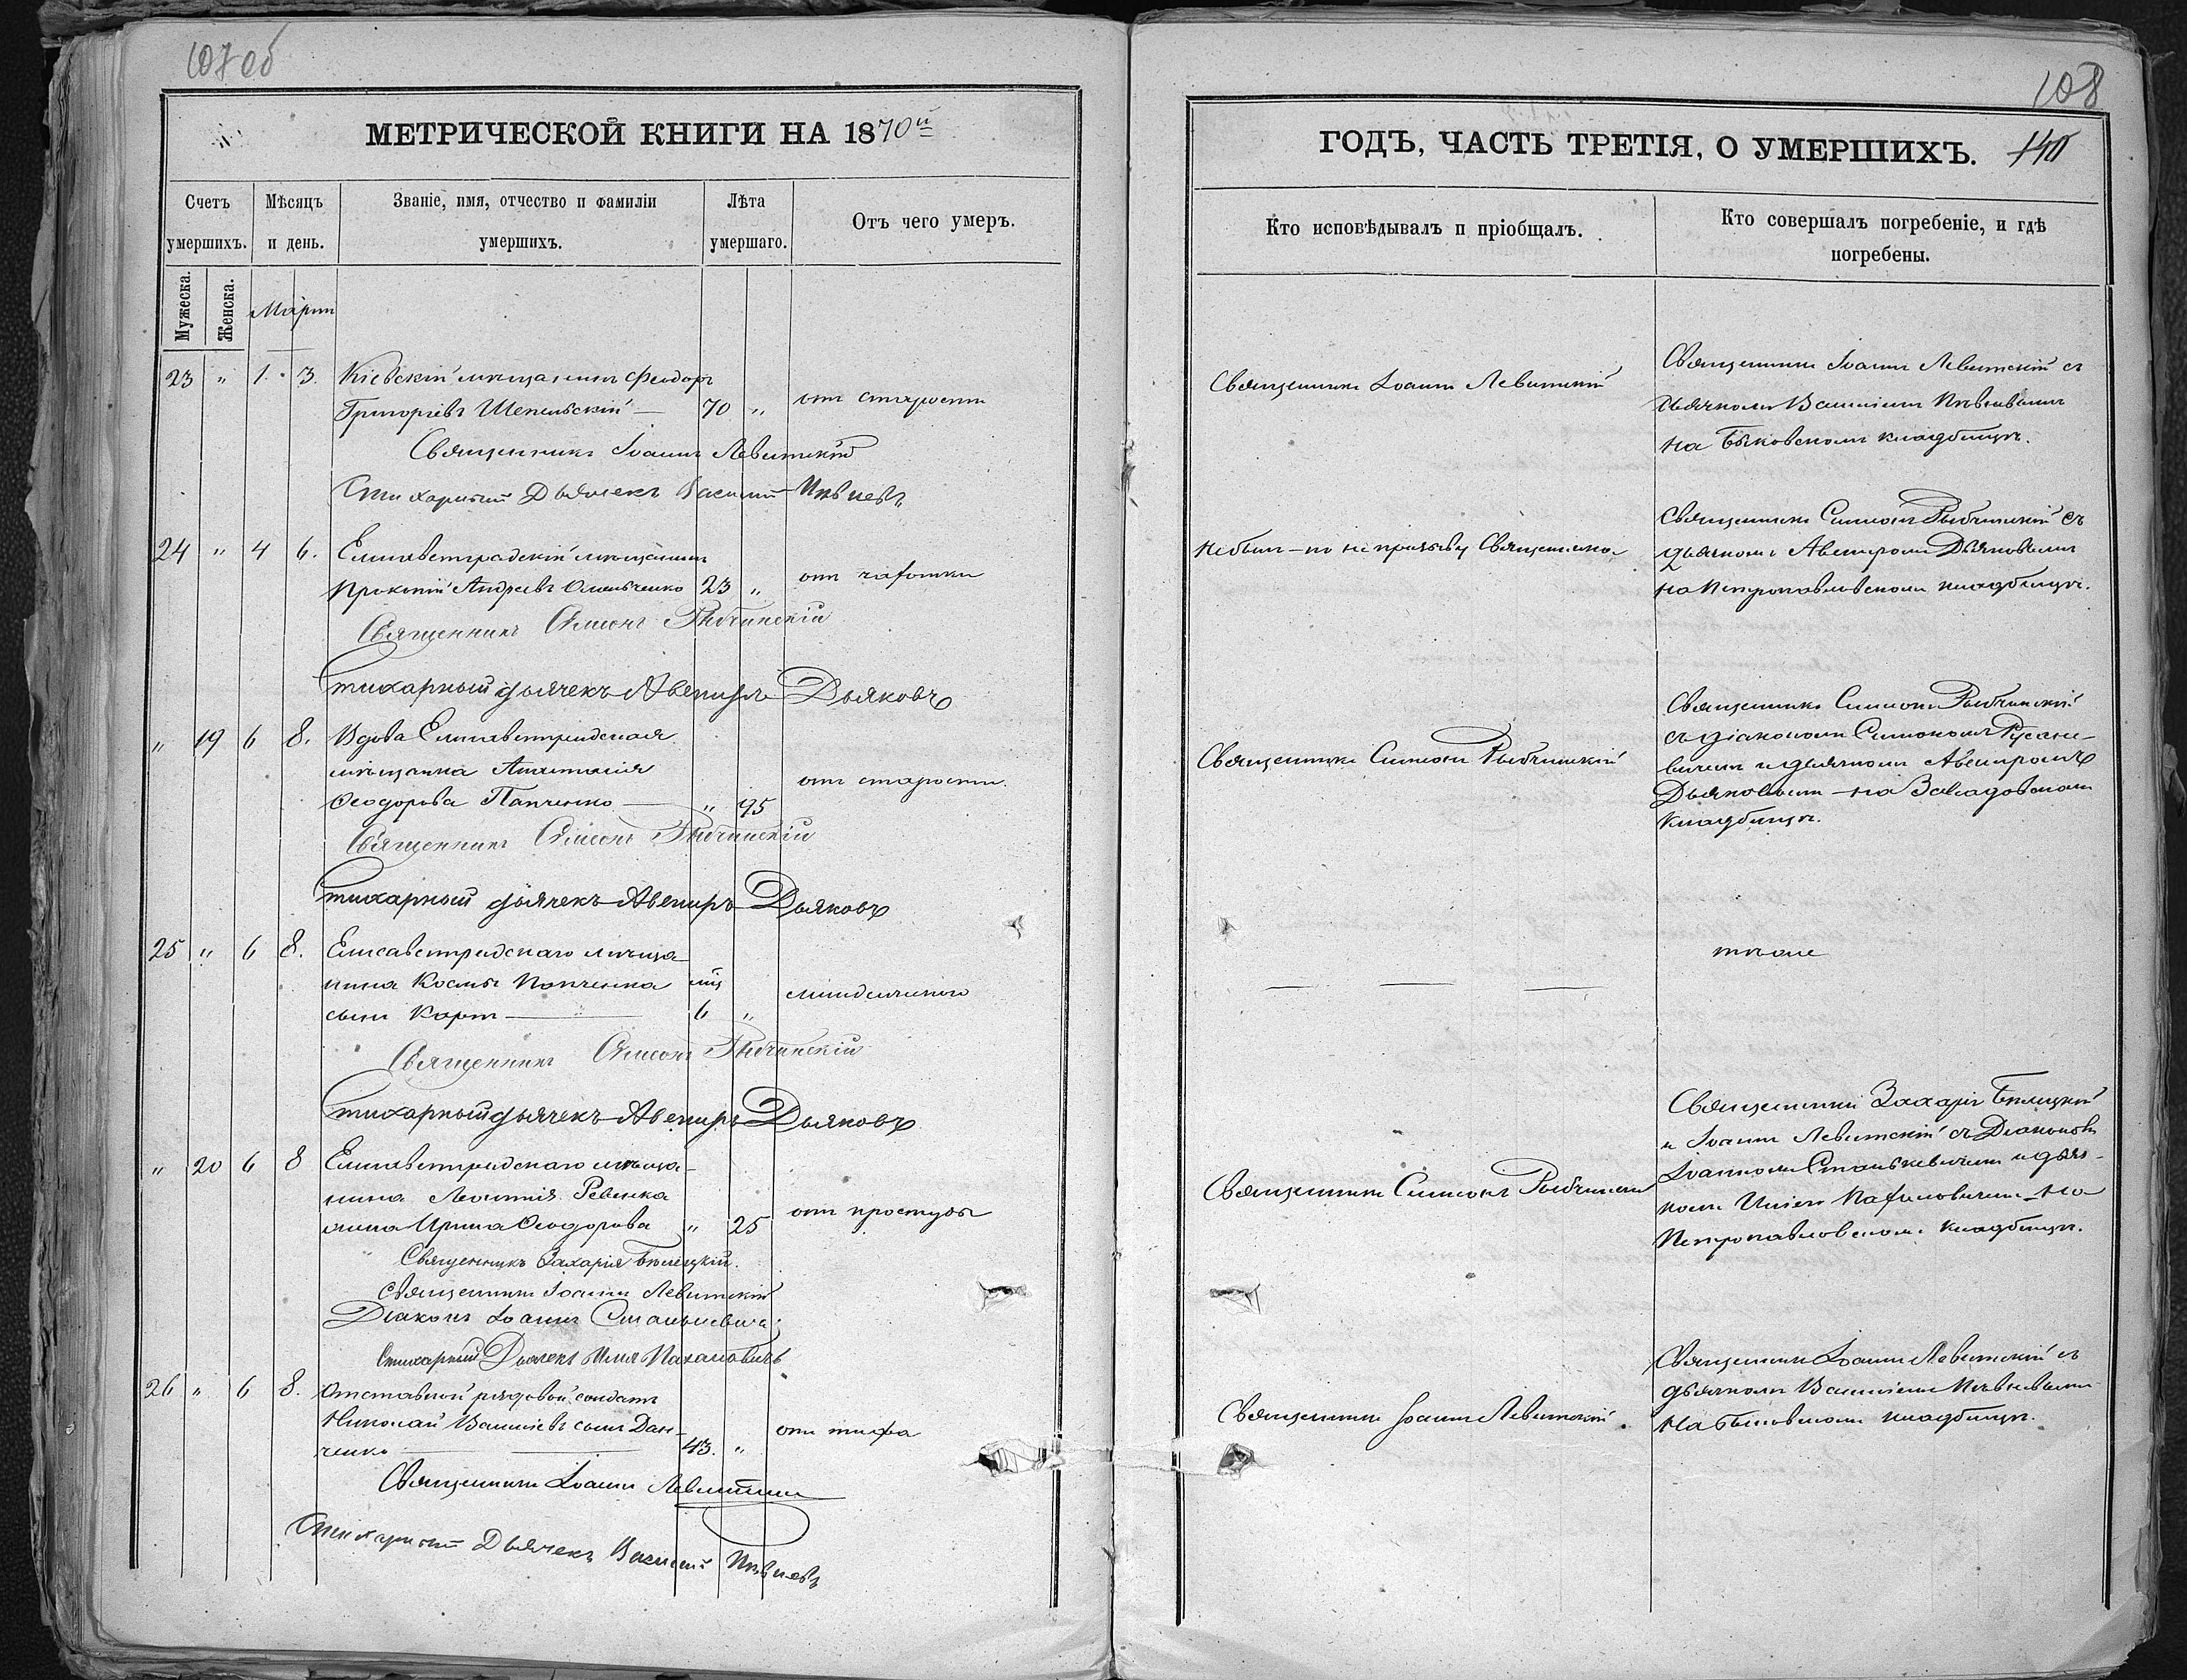 107об
МЕТРИЧЕСКОЙ КНИГИ НА 1870й
Счетъ умершихъ.
Мѣсяцъ и день.
Званіе, имя, отчество и фамиліи умершихъ.
Лѣта умершаго.
Отъ чего умеръ.
Мужеска.
Женска.
Мартъ
23 " 1. 3. Кіевскій мѣщанинъ Феодоръ
Григоріевъ — 70 " отъ старости
Священникъ Іоаннъ Левитскій
Стихарный Дьячекъ Василій Пѣвневъ
24 " 4 6. Елисаветградскій мѣщанинъ
Прокопій Андреевъ 23 " отъ чахотки
Священникъ Симеонъ Рыбчинскій
Стихарный дьячекъ Авениръ Дьяковъ
" 19 6 8. Вдова Елисаветградская
мѣщанка
Ѳеодорова Панченко — " 95 отъ старости.
Священникъ Симеонъ Рыбчинскій
Стихарный дьячекъ Авениръ Дьяковъ
25 " 6 8. Елисаветградскаго мѣща-
нина Космы Панченка мц
сынъ Карпъ — 6 " младенческаго
Священникъ Симеонъ Рыбчинскій
Стихарный дьячекъ Авениръ Дьяковъ
" 20 6 8 Елисаветградскаго мѣща-
нина Леонтія Ревенка
жена Ирина Ѳеодорова " 25 отъ простуды
Священникъ Захарія Бѣлецкій.
Священникъ Іоаннъ Левитскій
Діаконъ Іоаннъ Станькевичъ
Стихарный Дьячекъ Илія
26 " 6 8. Отставной рядовой солдатъ
Николай Василіевъ сынъ Дан-
ченко — 43. " отъ тифа
Священникъ Іоаннъ Левитскій
Стихарный Дьячекъ Василій Пѣвневъ
108
ГОДЪ, ЧАСТЬ ТРЕТІЯ, О УМЕРШИХЪ. 140
Кто исповѣдывалъ и пріобщалъ.
Кто совершалъ погребеніе, и гдѣ погребены.
Священникъ Іоаннъ Левитскій
Священникъ Іоаннъ Левитскій съ
дьячкомъ Василіемъ Пѣвневымъ
на Быковскомъ кладбищѣ.
Не былъ — по непризыву Священника
Священникъ Симеонъ Рыбчинскій съ
дьячкомъ Авениромъ Дьяковымъ
на Петропавловскомъ кладбищѣ.
Священникъ Симеонъ Рыбчинскій
Священникъ Симеонъ Рыбчинскій
съ діакономъ Симономъ Русане-
вичемъ и дьячкомъ Авениромъ
Дьяковымъ — на Завадовскомъ
кладбищѣ.
— — —
тѣ же
Священникъ Симеонъ Рыбчинскій
Священники Захарія Бѣлецкій
и Іоаннъ Левитскій съ Діакономъ
Іоанномъ Станькевичемъ и дьяч-
комъ Иліею на
Петропавловскомъ кладбищѣ.
Священникъ Іоаннъ Левитскій.
Священникъ Іоаннъ Левитскій съ
дьячкомъ Василіемъ Пѣвневымъ
на Быковскомъ кладбищѣ.